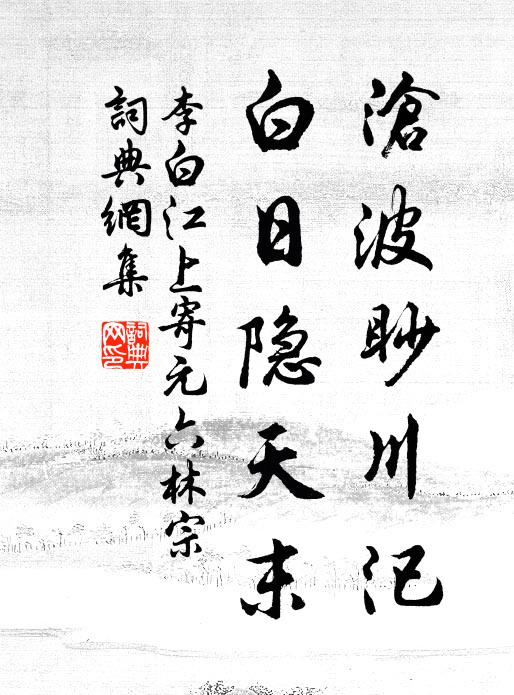 滄波眇川汜
白日隐天末
李白江上寄元六林宗
詞典網集
詞典网印